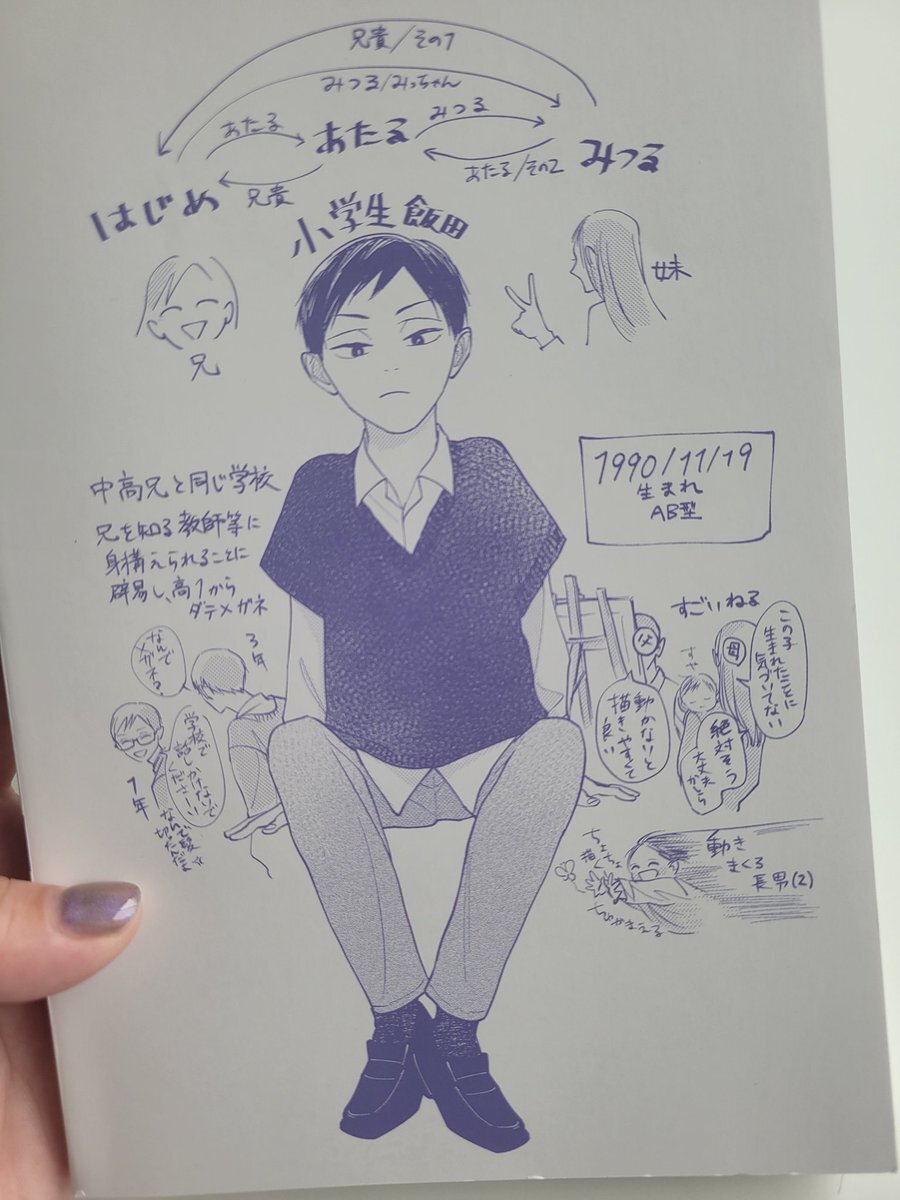 兄貴/その1
みつる/みっちゃん
あたる
みつる
あたる
兄貴
あたる/その2
はじめ
みつる
小学生 飯田
兄
妹
1990/11/19
生まれ
AB型
中高兄と同じ学校
兄を知る教師等に
身構えられることに
辟易し、高1から
ダテメガネ
なんで
メガネ
3年
1年
学校で
話しかけないで
ください
なんで髪
切ったんだよ
すごいねる
父
母
すや
この子
生まれたことに
気づいてない
絶対そう
大丈夫
かしら
動かないと
描きやすくて
良い
動き
まくる
長男(2)
ちょうちょ
つかまえる